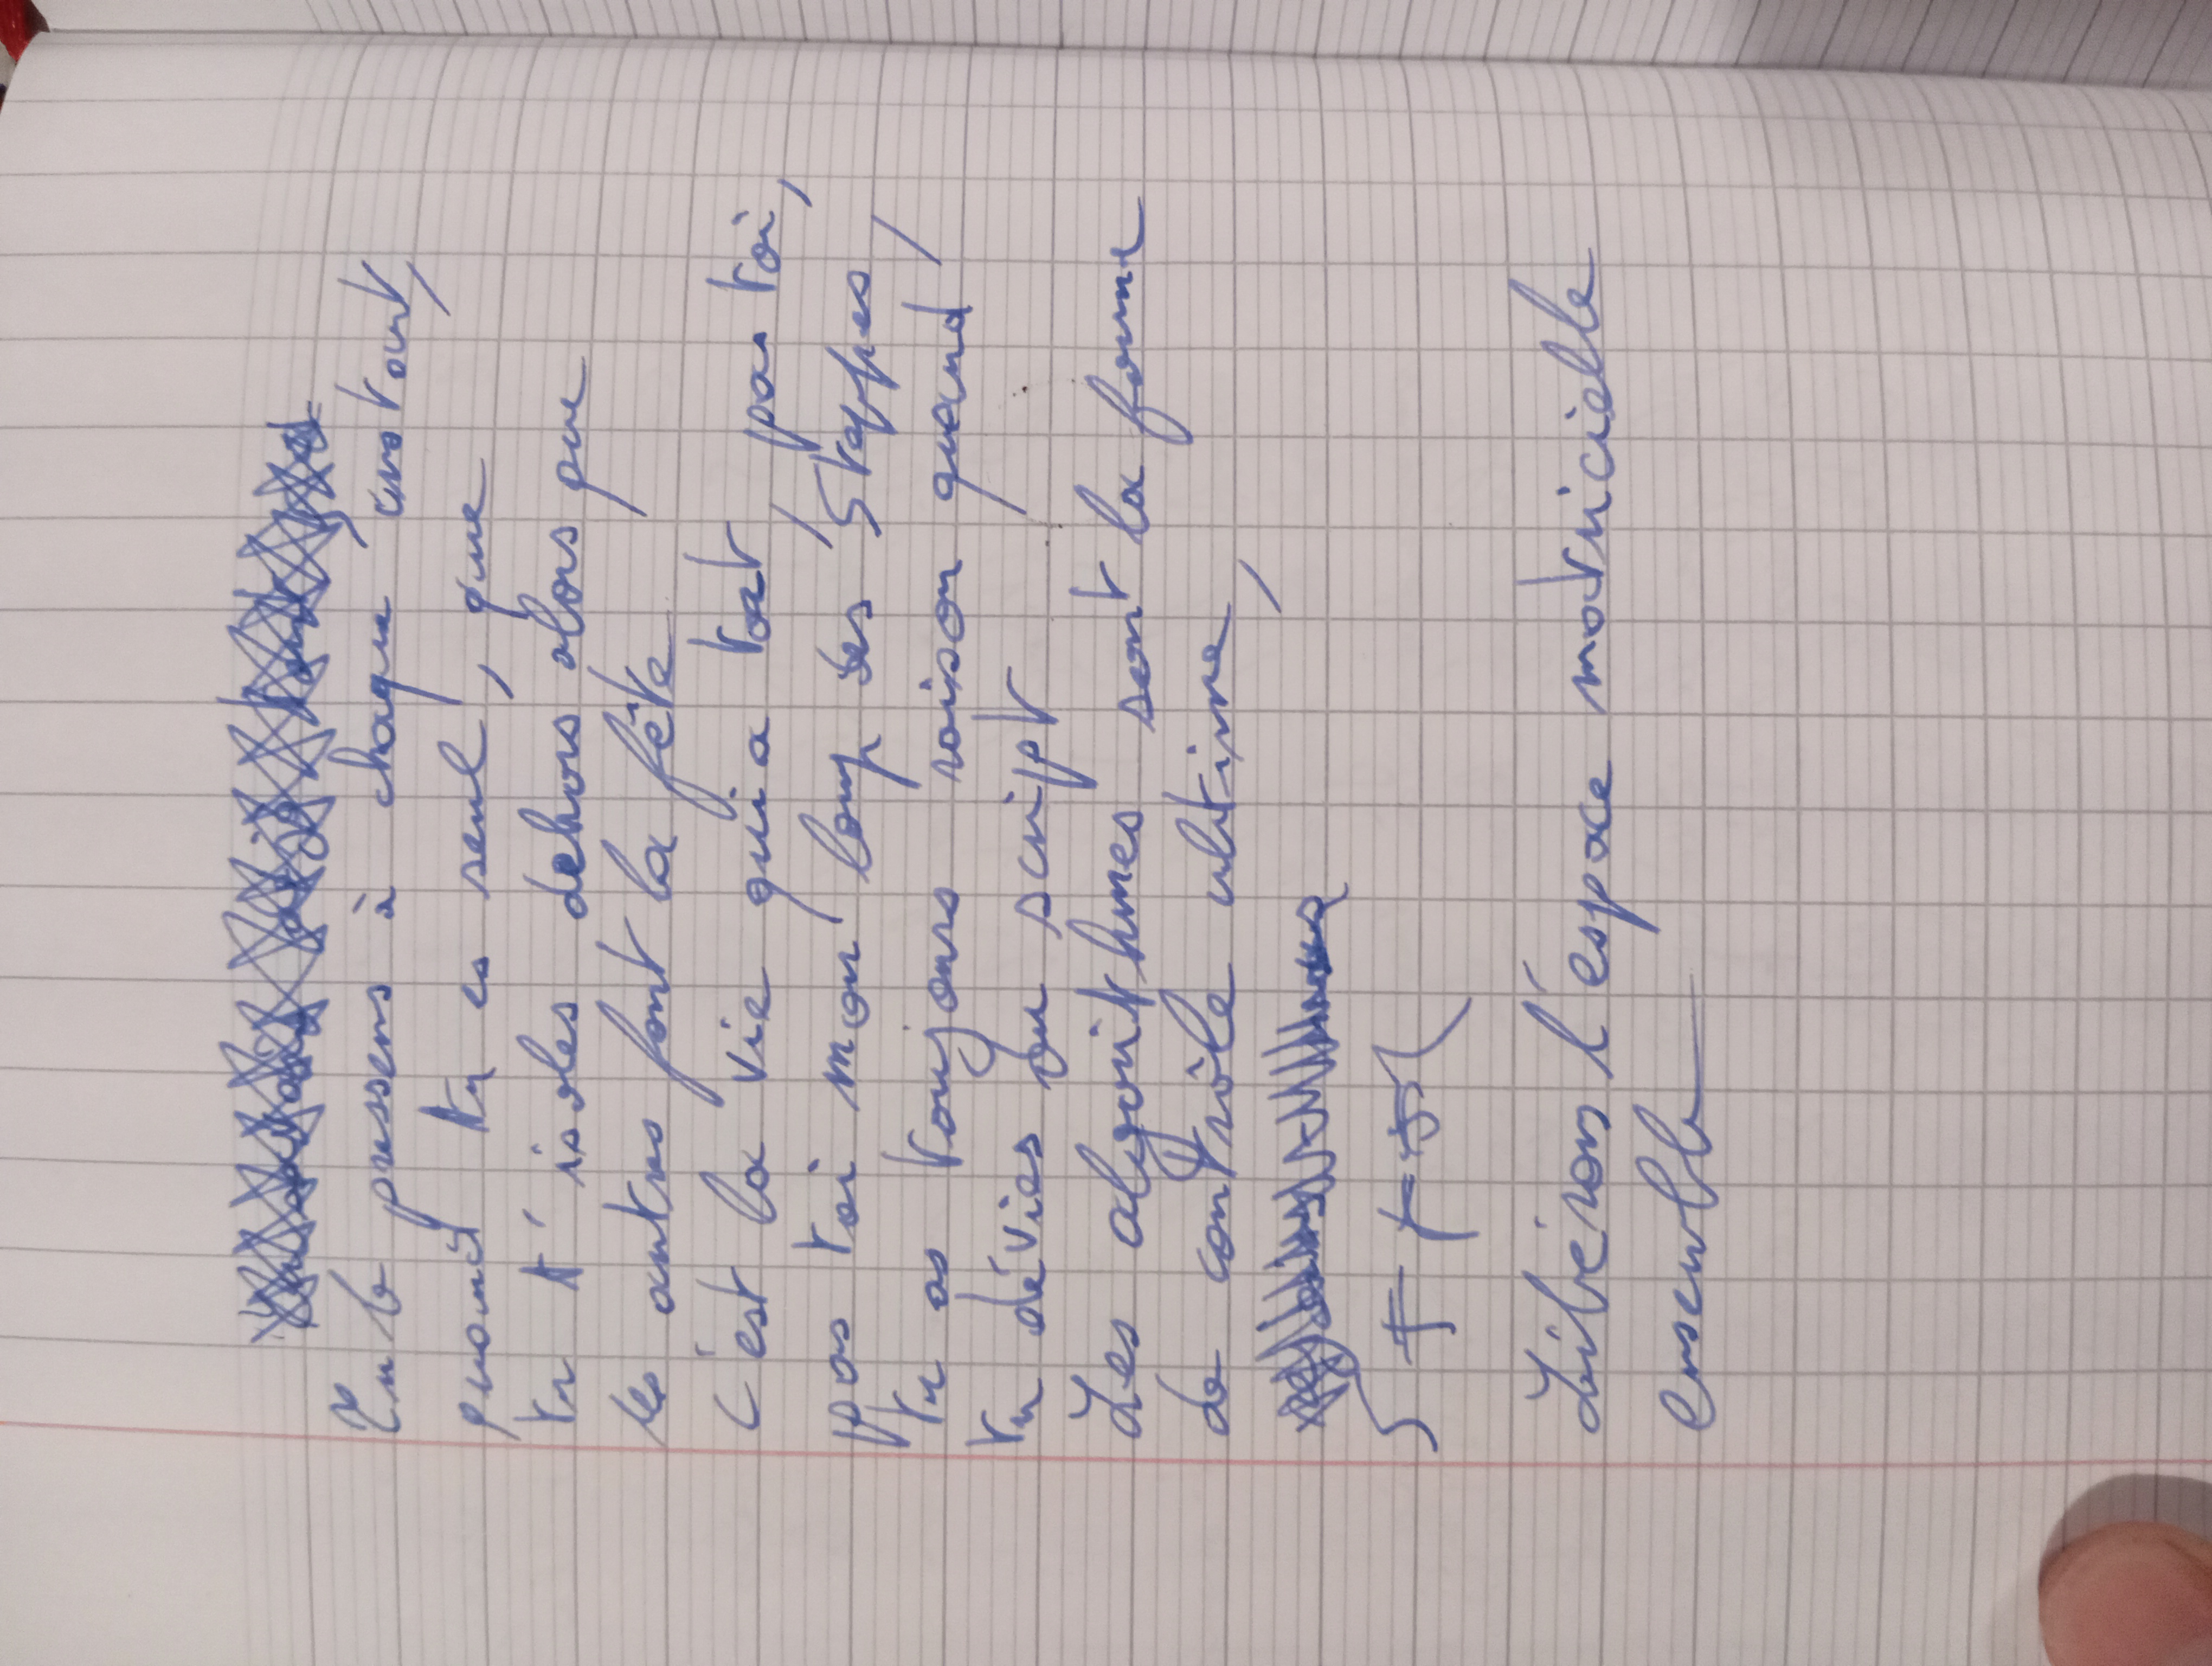 Tu le pressens à chaque instant,
quand tu es seul, que
tu t'isoles dehors alors que
les autres font la fête
C'est la vie qui a tort, pas toi,
pas toi mon loup des Steppes,
tu as toujours raison quand
tu dévies du script
Les algorithmes sont la forme
de contrôle ultime,
Libérons l'espace matricielle
ensemble